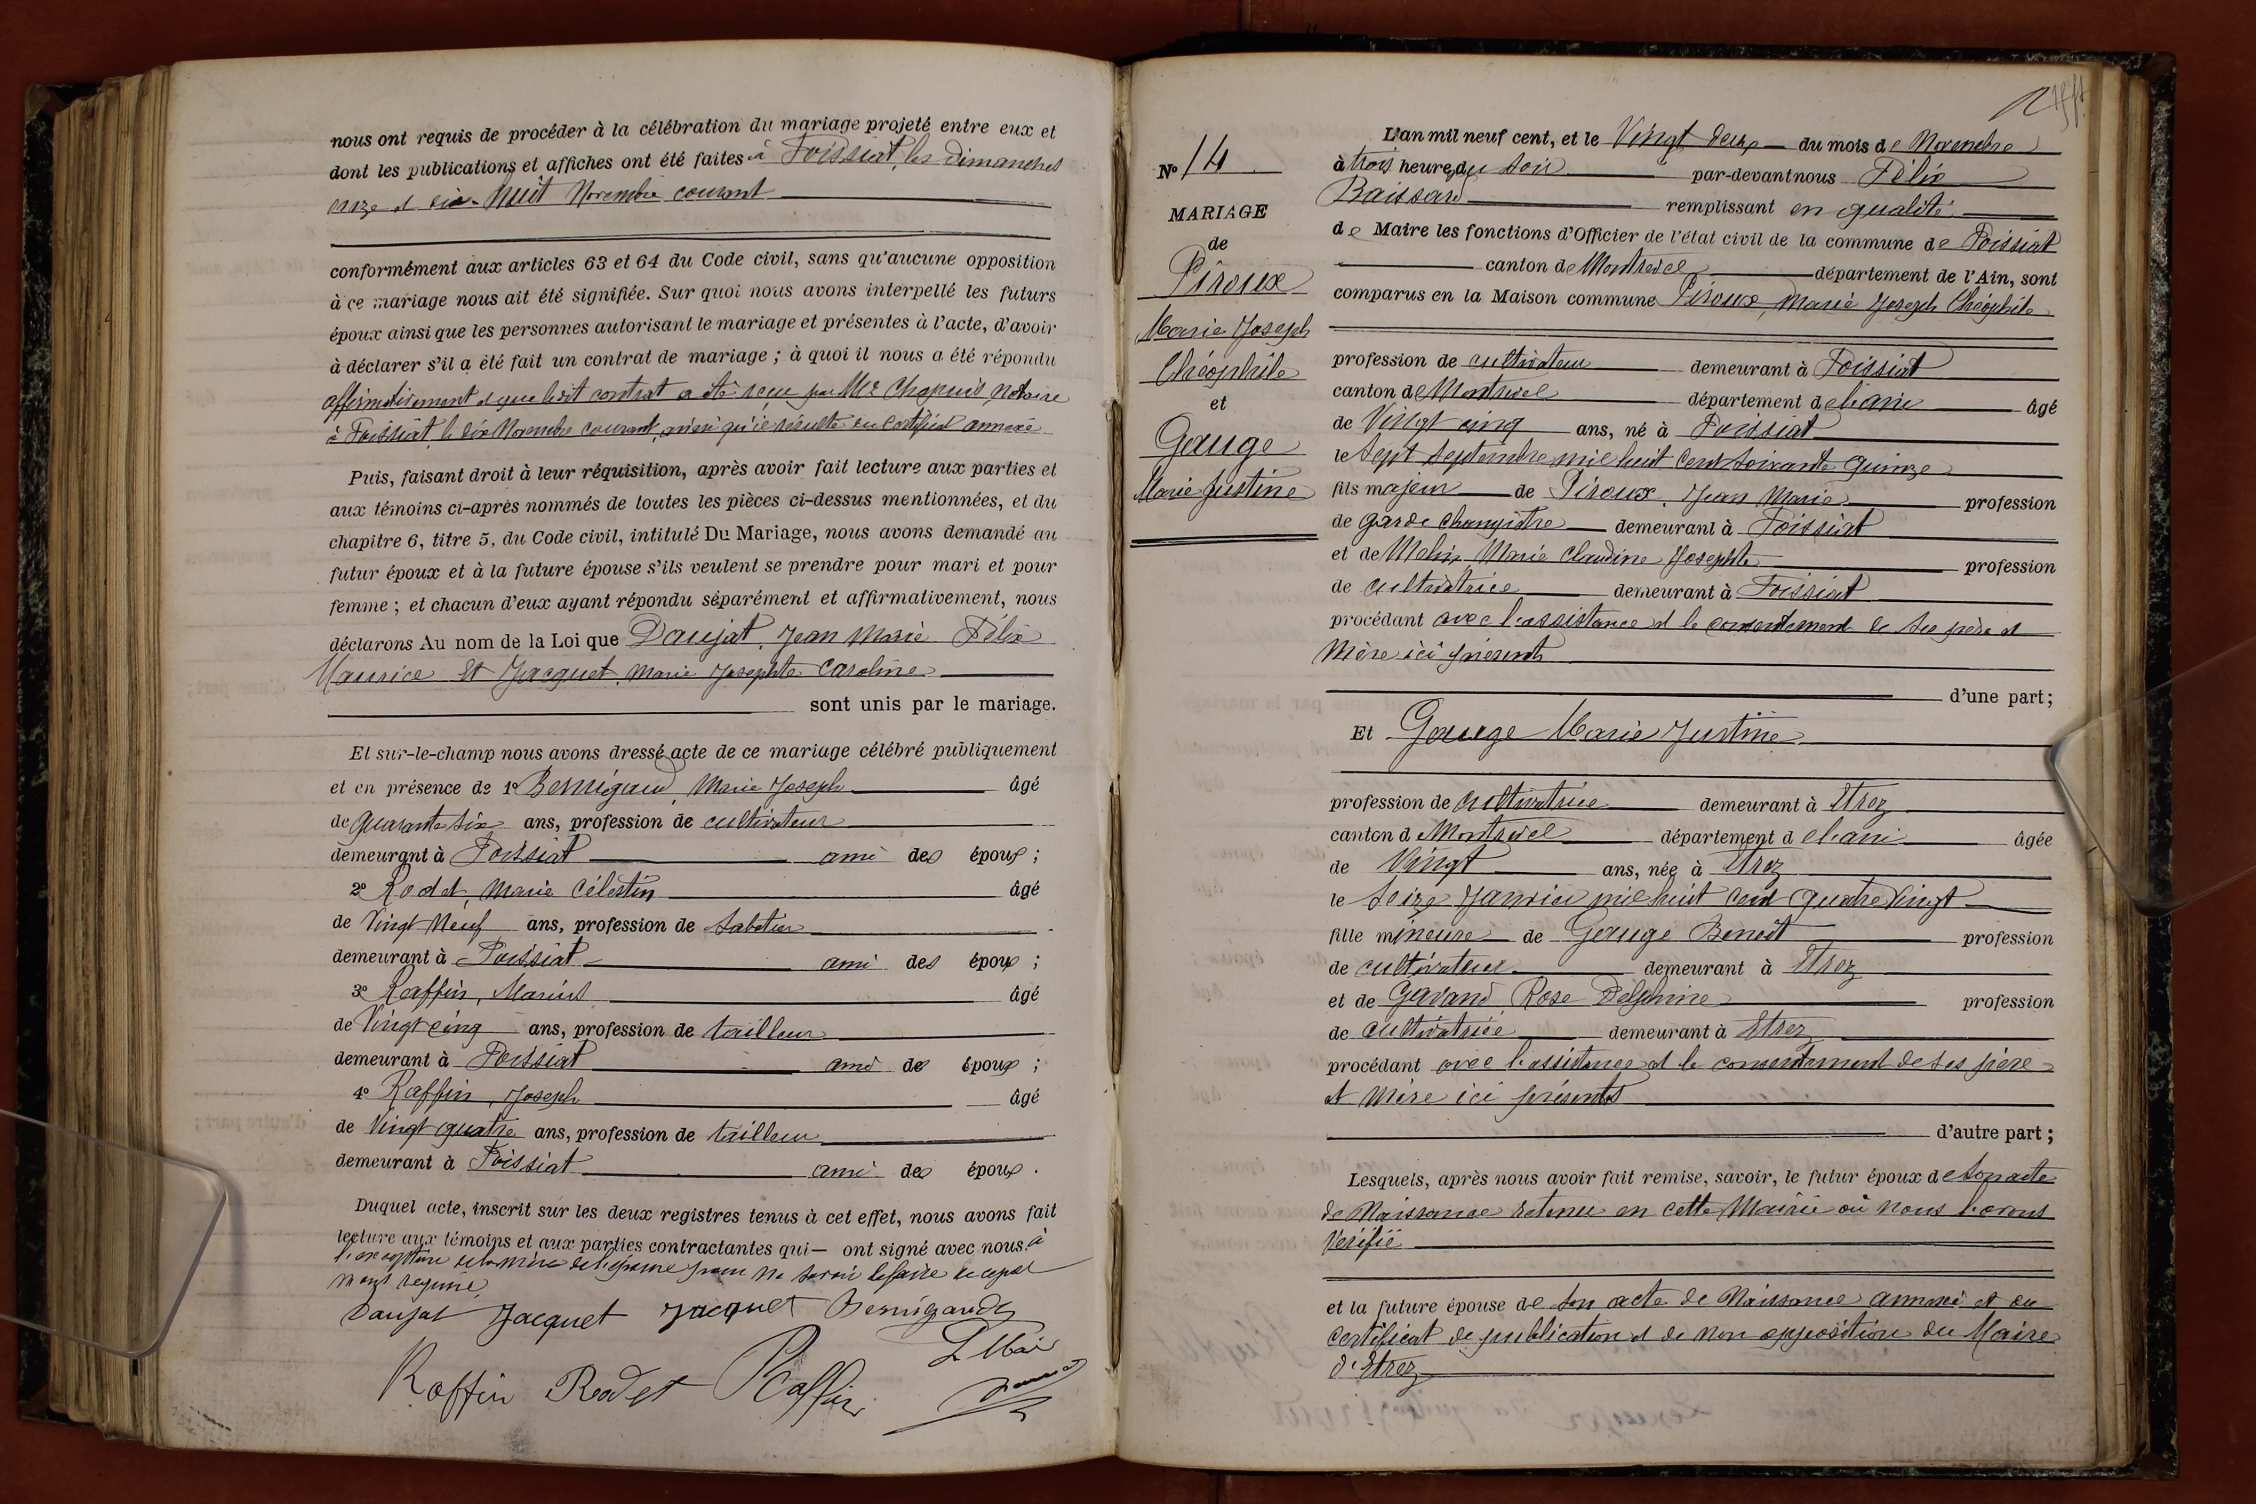 nous ont requis de procéder à la célébration du mariage projeté entre eux et
dont les publications et affiches ont été faites à Foissiat, les dimanches
onze et dix-huit Novembre courant
conformément aux articles 63 et 64 du Code civil, sans qu'aucune opposition
à ce mariage nous ait été signifiée. Sur quoi nous avons interpellé les futurs
époux ainsi que les personnes autorisant le mariage et présentes à l'acte, d'avoir
à déclarer s'il a été fait un contrat de mariage ; à quoi il nous a été répondu
affirmativement et que ledit contrat a été reçu par Me Chapuis, Notaire
à Foissiat, le dix Novembre courant, ainsi qu'il résulte du certificat annexé
Puis, faisant droit à leur réquisition, après avoir fait lecture aux parties et
aux témoins ci-après nommés de toutes les pièces ci-dessus mentionnées, et du
chapitre 6, titre 5, du Code civil, intitulé Du Mariage, nous avons demandé au
futur époux et à la future épouse s'ils veulent se prendre pour mari et pour
femme ; et chacun d'eux ayant répondu séparément et affirmativement, nous
déclarons Au nom de la Loi que Daujat, Jean Marie Félix
Maurice Et Jacquet, Marie Josephte Caroline
sont unis par le mariage.
Et sur-le-champ nous avons dressé acte de ce mariage célébré publiquement
et en présence de 1° Bernigaud, Marie Joseph âgé
de quarante six ans, profession de cultivateur
demeurant à Foissiat ami des époux ;
2° Rodet, Marie Célestin âgé
de Vingt Neuf ans, profession de Sabotier
demeurant à Foissiat ami des époux ;
3° Raffin, Marius âgé
de Vingt cinq ans, profession de tailleur
demeurant à Foissiat ami des époux ;
4° Raffin, Joseph âgé
de Vingt quatre ans, profession de tailleur
demeurant à Foissiat ami des époux .
Duquel acte, inscrit sur les deux registres tenus à cet effet, nous avons fait
lecture aux témoins et aux parties contractantes qui — ont signé avec nous à
l'exception de la mère de l'épouse pour ne savoir le faire de ce par
nous requise
Daujat Jacquet Jacquet Bernigaud
Le Maire
Raffin Rodet Raffin
N° 14
MARIAGE
de
Piroux
Marie Joseph
Théophile
et
Gauge
Marie Justine
L'an mil neuf cent, et le Vingt deux du mois de Novembre
à trois heures du soir par-devant nous Félix
Baissard remplissant en qualité
de Maire les fonctions d'Officier de l'état civil de la commune de Foissiat
canton de Montrevel département de l'Ain, sont
comparus en la Maison commune Piroux, Marie Joseph Théophile
profession de cultivateur demeurant à Foissiat
canton de Montrevel département de l'ain âgé
de Vingt cinq ans, né à Foissiat
le Sept Septembre mil huit cent soixante quinze
fils majeur de Piroux, Jean Marie profession
de garde champêtre demeurant à Foissiat
et de Marie Claudine Josephte profession
de cultivatrice demeurant à Foissiat
procédant avec l'assistance et le consentement de ses père et
Mère ici présents
d'une part ;
Et Gauge Marie Justine
profession de cultivatrice demeurant à Etrez
canton de Montrevel département de l'ain âgée
de Vingt ans, née à Etrez
le Seize Janvier mil huit cent quatre Vingt
fille mineure de Gauge Benoît profession
de cultivateur demeurant à Etrez
et de Gavand, Rose Delphine profession
de cultivatrice demeurant à Etrez
procédant avec l'assistance et le consentement de ses père
et Mère ici présents
d'autre part ;
Lesquels, après nous avoir fait remise, savoir, le futur époux de Son acte
de Naissance retenu en cette Mairie où nous l'avons
Vérifié
et la future épouse de Son acte de Naissance annexé et du
certificat de publication et de non opposition du Maire
d'Etrez